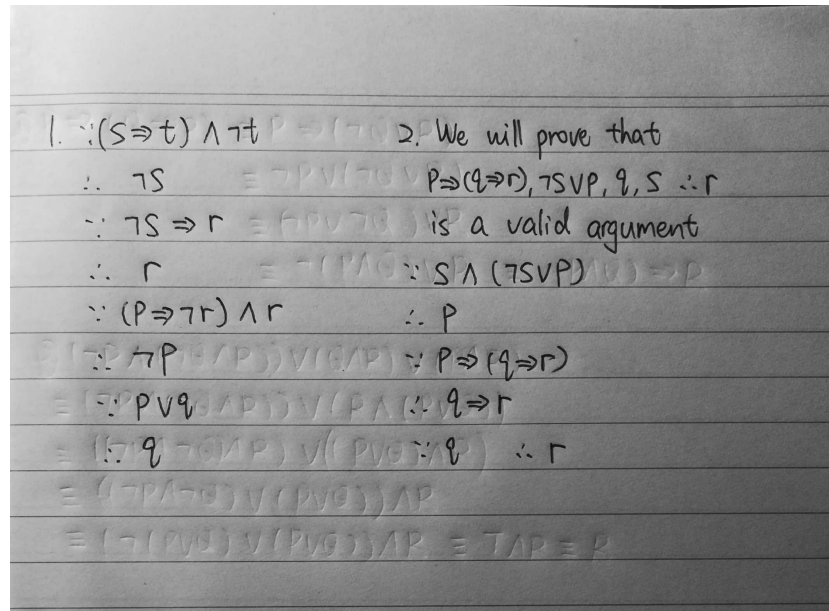 1. ∵ (S⇒t) ∧ ¬t
∴ ¬S
∵ ¬S ⇒ r
∴ r
∵ (P⇒¬r) ∧ r
∴ ¬P
∵ P∨q
∴ q
2. We will prove that
P⇒(q⇒r), ¬S∨P, q, S ∴ r
is a valid argument
∵ S ∧ (¬S∨P)
∴ P
∵ P⇒(q⇒r)
∴ q⇒r
∵ q ∴ r
≡ (¬(P∨Q) ∨ (P∨Q)) ∧ P ≡ T∧P ≡ P